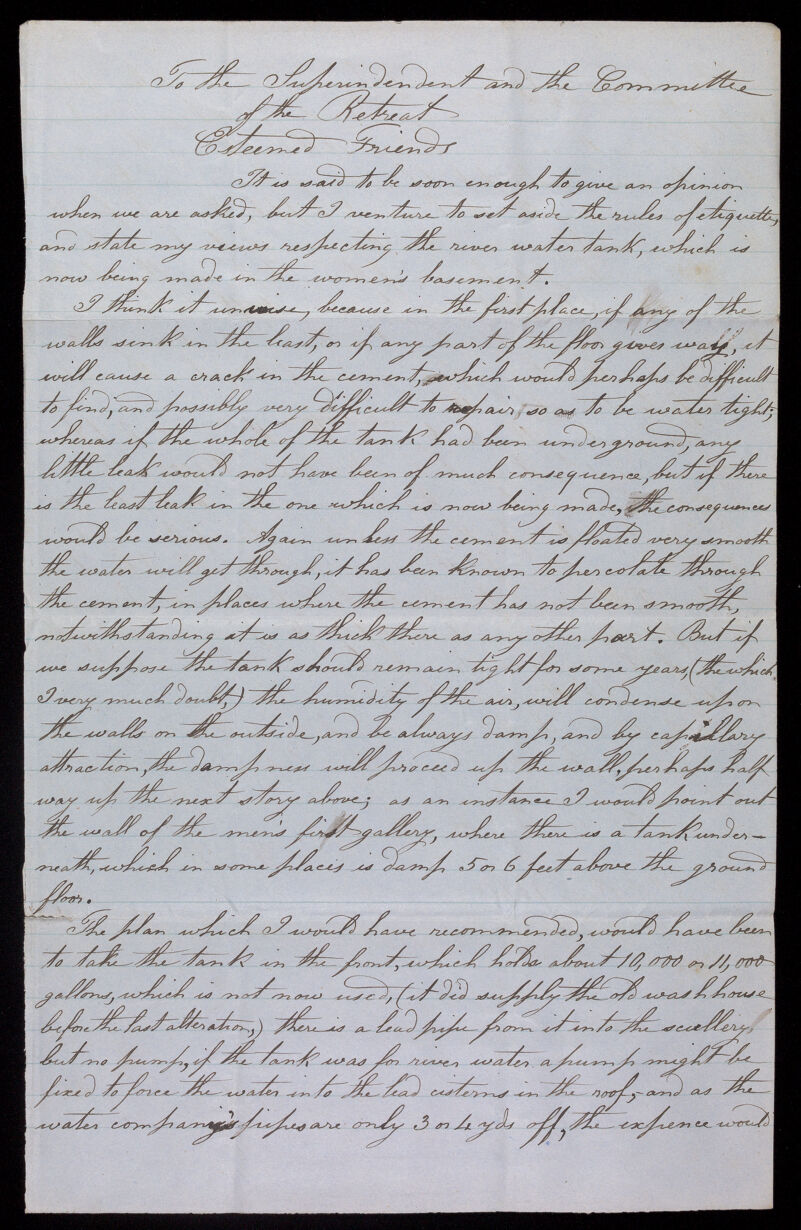 To the Superindendent and the Committee
of the Retreat
Esteemed Friends
It is said to be soon enough to give an opinion
when we are asked, but I venture to set aside the rules of etiquette,
and state my views respecting the river water tank, which is
now being made in the women's basement.
I think it unwise, because in the first place, if any of the
walls sink in the least, or if any part of the floor gives way, it
will cause a crack in the cement, which would perhaps be difficult
to find, and possibly very difficult to repair, so as to be water tight;
whereas if the whole of the tank had been underground, any
little leak would not have been of much consequence, but if there
is the least leak in the one which is now being made, the consequences
would be serious. Again unless the cement is floated very smooth
the water will get through, it has been known to percolate through
the cement, in places where the cement has not been smooth,
notwithstanding it is as thick there as any other part. But if
we suppose the tank should remain tight for some years, (the which
I very much doubt,) the humidity of the air, will condense upon
the walls on the outside, and be always damp, and by capillary
attraction, the dampness will proceed up the wall, perhaps half
way up the next story above; as an instance I would point out
the wall of the men's first gallery, where there is a tank under-
neath, which in some places is damp 5 or 6 feet above the ground
floor.
The plan which I would have recommended, would have been
to take the tank in the front, which holds about 10,000 or 11,000
gallons, which is not now used, (it did supply the old wash house
before the last alteration,) there is a lead pipe from it into the scullery
but no pump, if the tank was for river water a pump might be
fixed to force the water into the lead cisterns in the roof, and as the
water company's pipes are only 3 or 4 yds off, the expence would